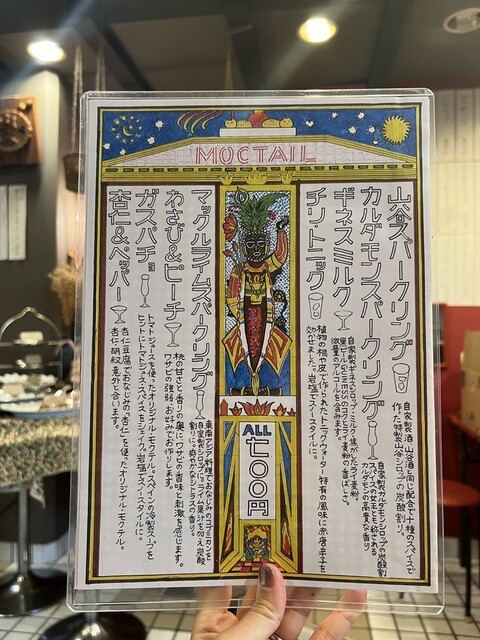 MOCTAIL
山谷スパークリング
自家製酒、山谷酒と同じ配合で十種のスパイスで
作った特製山谷シロップの炭酸割り。
カルダモンスパークリング
自家製カルダモンシロップの炭酸割
スパイスの女王とも称される
カルダモンの高貴な香り
ギネスミルク
自家製ギネスシロップ、ミルク、焦がしたライ麦粉。
黒ビールGUINNESSのコクとライ麦粉の香ばしさ。
微量のアルコールを含みます。
チリ・トニック
植物の根や皮で作られたトニックウォーター特有の風味に赤唐辛子を
効かせました。岩塩でスノースタイルに。
ALL
七〇〇円
マックルライムスパークリング
東南アジア料理でおなじみのコブミカンと
自家製シロップにライム果汁を加え炭酸
割りに。爽やかなシトラスの香り。
わさび&ピーチ
桃の甘さと香りの奥にワサビの香味と刺激を感じます。
ワサビの強弱お好みでお作りします。
ガスパチョ
トマトジュースを使ったオリジナル・モクテル。スペインの冷製スープを
ヒントにトマトジュースとスパイスをシェイク。岩塩でスノースタイルに。
杏仁&ペッパー
杏仁豆腐でおなじみの"杏仁"を使ったオリジナル・モクテル。
杏仁、胡椒、意外と合います。